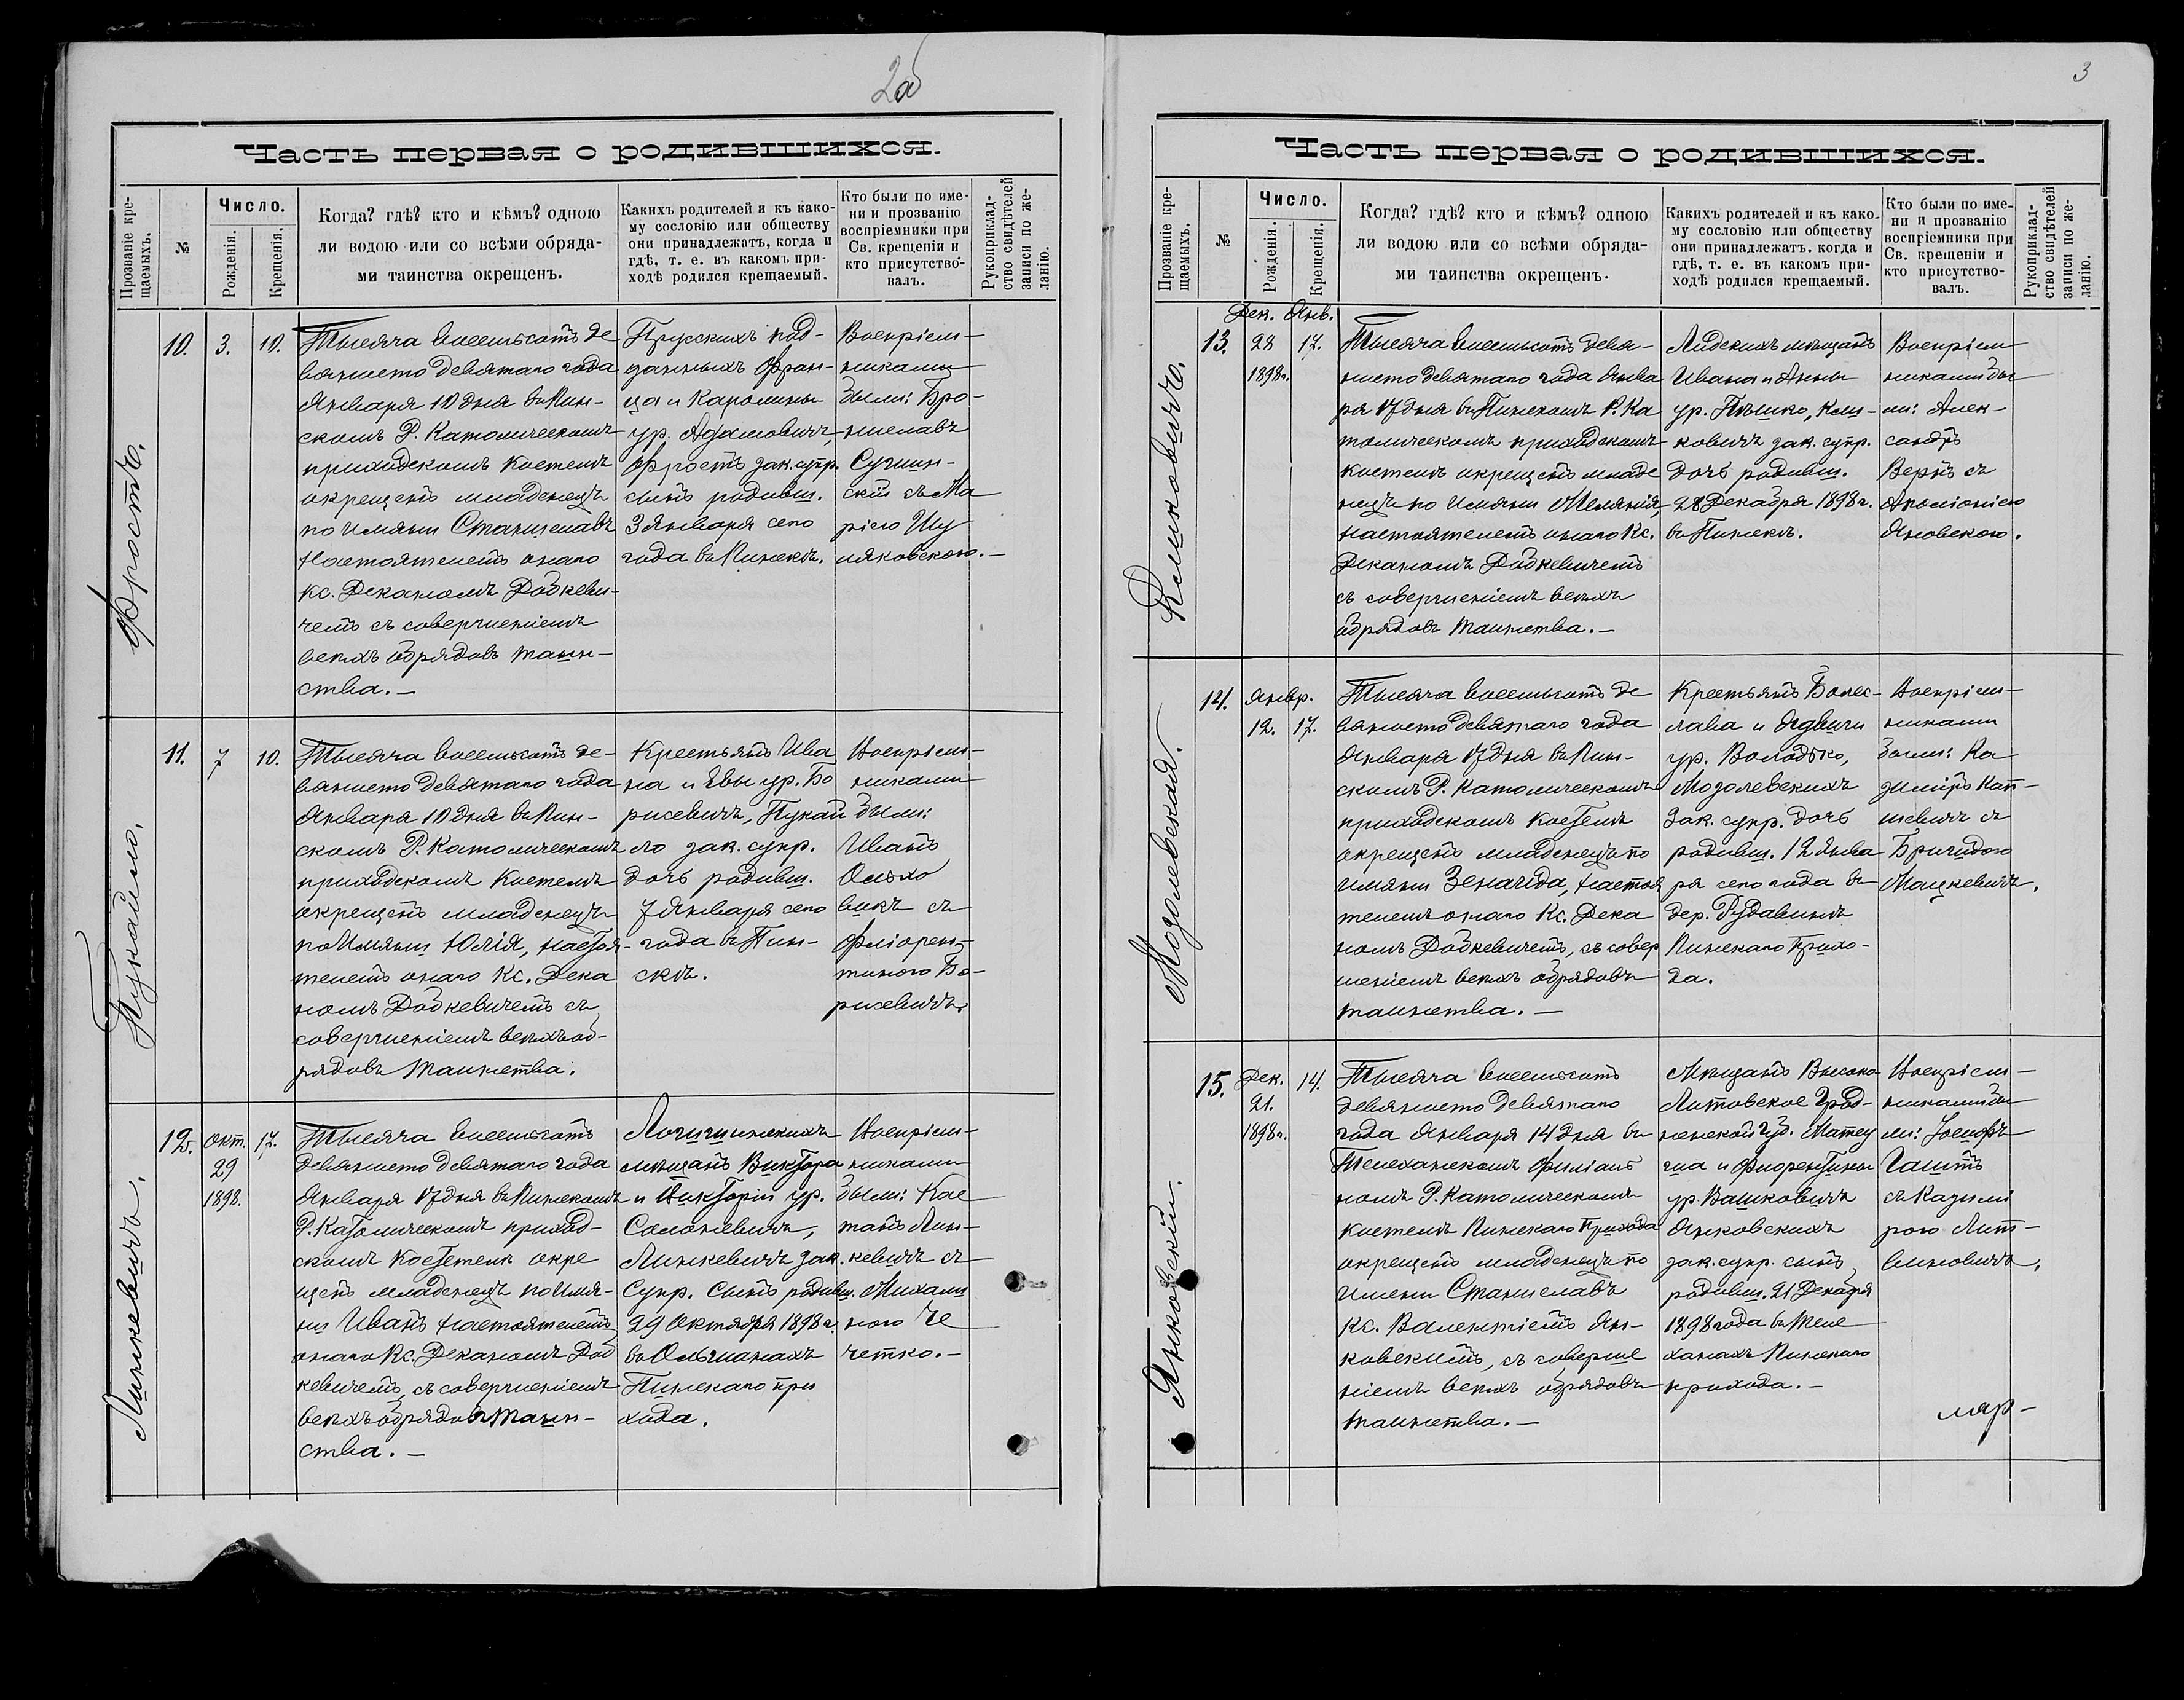 2об
Часть первая о родившихся.
Прозваніе крещаемыхъ.
№
Число.
Рожденія.
Крещенія.
Когда? гдѣ? кто и кѣмъ? одною
ли водою или со всѣми обряда-
ми таинства окрещенъ.
Какихъ родителей и къ како-
му сословію или обществу
они принадлежатъ, когда и
гдѣ, т. е. въ какомъ при-
ходѣ родился крещаемый.
Кто были по име-
ни и прозванію
воспріемники при
Св. крещеніи и
кто присутство-
валъ.
Рукоприклад-
ство свидѣтелей
записи по же-
ланію.
Фростъ.
10.
3.
10.
Тысяча восемьсотъ де
вяносто девятаго года
Января 10 дня въ Пин-
скомъ Р. Католическомъ
приходскомъ костелѣ
окрещенъ младенецъ
по имяни Станиславъ
Настоятелемъ онаго
Кс. Деканомъ Добкеви-
чемъ съ совершеніемъ
всѣхъ обрядовъ таин-
ства. —
Прусскихъ под-
данныхъ Фран-
ца и Каролины
ур. Адамовичъ,
Фростъ зак. супр.
сынъ родивш.
3 Января сего
года въ Пинскѣ.
Воспріем-
никами
были: Бро-
ниславъ
Сучин-
скій съ Ма
ріею Шу
ляковскою. —
Пукайло.
11.
7
10.
Тысяча восемьсотъ де-
вяносто девятаго года
Января 10 дня въ Пин-
скомъ Р. Католическомъ
приходскомъ костелѣ
окрещенъ младенецъ
по имяни Юлія, настоя-
телемъ онаго Кс. Дека
номъ Добкевичемъ съ
совершеніемъ всѣхъ об-
рядовъ таинства.
Крестьянъ Ива
на и Евы ур. Бо
рисевичъ, Пукай
ло зак. супр.
дочь родивш.
7 Января сего
года въ Пин-
скѣ.
Воспріем-
никами
были:
Иванъ
Ольхо
викъ съ
Фліорен-
тиною Бо-
рисевичъ.
Линкевичъ.
12.
Окт.
29
1898.
17.
Тысяча восемьсотъ
девяносто девятаго года
Января 17 дня въ Пинскомъ
Р. Католическомъ приход-
скомъ костелѣ окре
щенъ младенецъ по имя-
ни Иванъ настоятелемъ
онаго Кс. Деканомъ Доб
кевичемъ, съ совершеніемъ
всѣхъ обрядовъ таин-
ства. —
Логишинскихъ
мѣщанъ Виктора
и Викторіи ур.
Солоневичъ,
Линкевичъ зак.
супр. сынъ родивш.
29 Октября 1898 г.
въ Ольшанахъ
Пинскаго при
хода.
Воспріем-
никами
были: Кае
танъ Лин-
кевичъ съ
Михали
ною Че
четко. —
3
Часть первая о родившихся.
Прозваніе крещаемыхъ.
№
Число.
Рожденія.
Крещенія.
Когда? гдѣ? кто и кѣмъ? одною
ли водою или со всѣми обряда-
ми таинства окрещенъ.
Какихъ родителей и къ како-
му сословію или обществу
они принадлежатъ. когда и
гдѣ, т. е. въ какомъ при-
ходѣ родился крещаемый.
Кто были по име-
ни и прозванію
воспріемники при
Св. крещеніи и
кто присутство-
валъ.
Рукоприклад-
ство свидѣтелей
записи по же-
ланію.
Климковичъ.
13.
Дек. Янв.
28
1898 г.
17.
Тысяча восемьсотъ девя-
носто девятаго года Янва
ря 17 дня въ Пинскомъ Р. Ка
толическомъ приходскомъ
костелѣ окрещенъ младе
нецъ по имяни Мелянія,
настоятелемъ онаго Кс.
Деканомъ Добкевичемъ
съ совершеніемъ всѣхъ
обрядовъ таинства. —
Лидскихъ мѣщанъ
Ивана и Анны
ур. Пѣшко, Клим-
ковичъ зак. супр.
дочь родивш.
28 Декабря 1898 г.
въ Пинскѣ.
Воспріем
никами бы
ли: Алек-
сандръ
Вернъ съ
Аполіоніею
Яновскою.
Мозолевская.
14.
Январ.
12.
17.
Тысяча восемьсотъ де
вяносто девятаго года
Января 17 дня въ Пин-
скомъ Р. Католическомъ
приходскомъ костелѣ
окрещенъ младенецъ по
имяни Зенаида, настоя
телемъ онаго Кс. Дека
номъ Добкевичемъ, съ совер
шеніемъ всѣхъ обрядовъ
таинства. —
Крестьянъ Болес-
лава и Ядвиги
ур. Володько,
Мозолевскихъ
зак. супр. дочь
родивш. 12 Янва
ря сего года въ
дер. Рудавинѣ
Пинскаго прихо-
да.
Воспріем-
никами
были: Ка
зиміръ Кап-
шевичъ съ
Бригидою
Мацкевичъ.
Янковскій.
15.
Дек.
21.
1898 г.
14.
Тысяча восемьсотъ
девяносто девятаго
года Января 14 дня въ
Телеханскомъ филіаль
номъ Р. Католическомъ
костелѣ Пинскаго прихода
окрещенъ младенецъ по
имени Станиславъ
Кс. Валентіемъ Ян-
ковскимъ, съ соверше
ніемъ всѣхъ обрядовъ
таинства. —
Мѣщанъ Высоко
Литовское Грод-
ненской губ. Матеу
ша и Флорентины
ур. Вашковичъ
Янковскихъ
зак. супр. сынъ,
родивш. 21 Декабря
1898 года въ Теле
ханахъ Пинскаго
прихода. —
Воспріем-
никами бы
ли: Іосифъ
Гаштъ
съ Казимі
рою Лит-
виновичъ.